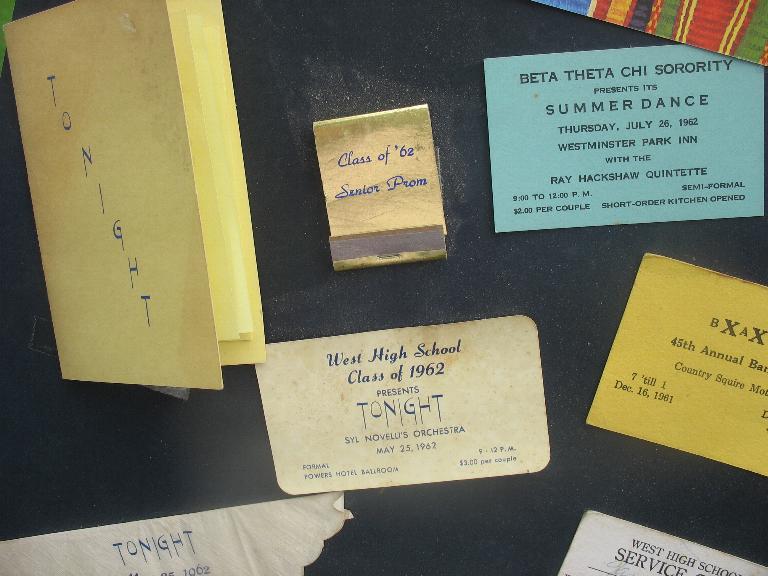 TONIGHT
Class of '62
Senior Prom
BETA THETA CHI SORORITY
PRESENTS ITS
SUMMER DANCE
THURSDAY, JULY 26, 1962
WESTMINSTER PARK INN
WITH THE
RAY HACKSHAW QUINTETTE
9:00 TO 12:00 P. M. SEMI-FORMAL
$2.00 PER COUPLE SHORT-ORDER KITCHEN OPENED
West High School
Class of 1962
PRESENTS
TONIGHT
SYL NOVELLI'S ORCHESTRA
MAY 25, 1962
FORMAL 9 - 12 P.M.
POWERS HOTEL BALLROOM $3.00 per couple
45th Annual
Country Squire
7 'till 1
Dec. 16, 1961
TONIGHT
25, 1962
WEST HIGH SCHOOL
SERVICE